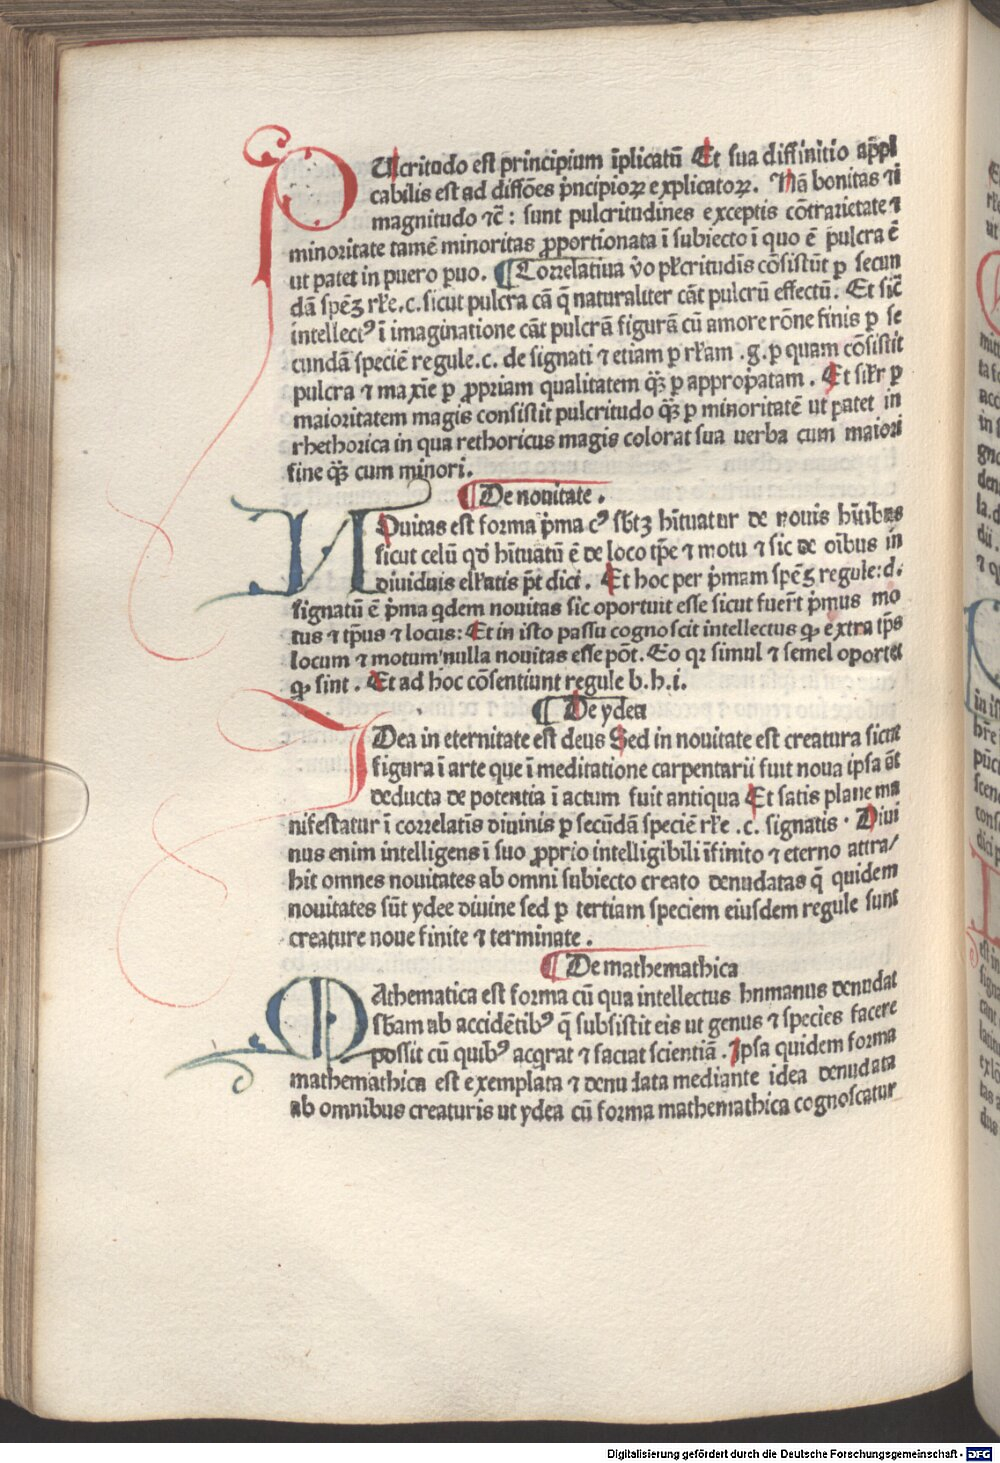 PUlcritudo est principium īplicatū Et sua diffinitio app̄l
cabilis est ad diffōes p̄ncipioꝝ explicatoꝝ. Nā bonitas ⁊
magnitudo ⁊c̄: sunt pulcritudines exceptis cōtrarietate ⁊
minoritate tamē minoritas ꝓportionata ī subiecto ī quo ē pulcra ē
ut patet in puero puo. ¶ Correlatiua v̄o plc̄ritudīs cōsistūt ꝑ secun
dā spēꝫ rł'e.c. sicut pulcra cā q̄ naturaliter cāt pulcrū effectū. Et sic̄
intellectꝰ ī imaginatione cāt pulcrā figurā cū amore rōne finis ꝑ se
cundā speciē regule.c. de signati ⁊ etiam ꝑ rłam .g. ꝑ quam cōsistit
pulcra ⁊ maxīe ꝑ ꝓpriam qualitatem qꝫ̄ ꝑ appropatam. Et silr ꝑ
maioritatem magis consistit pulcritudo qꝫ̄ ꝑ minoritatē ut patet in
rhethorica in qua rethoricus magis colorat sua uerba cum maiori
fine qꝫ̄ cum minori.
¶ De nouitate.
NOuitas est forma p̄ma cꝰ sbtꝫ hītuatur de nouis hītibus
sicut celū qd̄ hītuatū ē de loco tp̄e ⁊ motu ⁊ sic de oībus in
diuiduis elātis pt̄ dici. Et hoc per p̄mam spēꝫ regule:d.
signatū ē p̄ma qdem nouitas sic oportuit esse sicut fuer̄t p̄mus mo
tus ⁊ tp̄us ⁊ locus: Et in isto passu cognoscit intellectus ꝙ extra tp̄s
locum ⁊ motum nulla nouitas esse pōt. Eo qꝛ simul ⁊ semel oportet
ꝙ sint. Et ad hoc cōsentiunt regule b.h.i.
¶ De ydea
IDea in eternitate est deus Sed in nouitate est creatura sicut
figura ī arte que ī meditatione carpentarii fuit noua ipsa āt
deducta de potentia ī actum fuit antiqua Et satis plane ma
nifestatur ī correlatīs diuinis ꝑ secūdā speciē rłe .c. signatis. Diui
nus enim intelligens ī suo ꝓprio intelligibili īfinito ⁊ eterno attra/
hit omnes nouitates ab omni subiecto creato denudatas q̄ quidem
nouitates sūt ydee diuine sed ꝑ tertiam speciem eiusdem regule sunt
creature noue finite ⁊ terminate.
¶ De mathemathica
MAthematica est forma cū qua intellectus hnmanus denudat
sbam ab accidētibꝰ q̄ subsistit eis ut genus ⁊ species facere
possit cū quibꝰ acqrat ⁊ faciat scientiā. Ipsa quidem forma
mathemathica est exemplata ⁊ denudata mediante idea denudata
ab omnibus creaturis ut ydea cū forma mathemathica cognoscatur
Digitalisierung gefördert durch die Deutsche Forschungsgemeinschaft - DFG